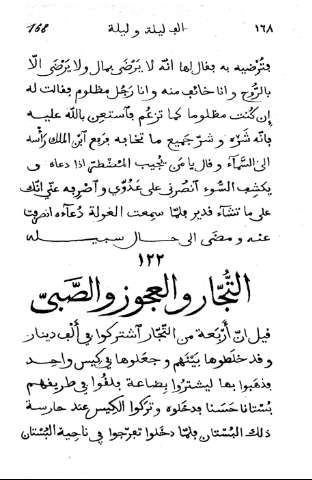 ١٦٨ الف ليلة وليلة 168
فترضيه به فقال لها انّه لا يَرْضَى بمال ولا يَرْضَى الّا
بالرُّوح وانا خائف منه وانا رَجُل مظلوم فقالت له
إن كُنت مظلوما كما تزعُم فاَسْتَعِن بالله عليه
فانّه شَرّه وشَرّ جميع ما تخافه فرفع ابن الملك رَأْسه
الى السَّمآء وقال يا مَن يُجيب المُضْطَرّ اذا دعاه و
يكشِف السُّوء اَنصُرْني على عَدُوّي وَاَصْرِفه عنّي انّك
على ما تشآء قدير فلمّا سمعت الغولة دُعآءه انصرفت
عنه ومضى الى حال سبيله
١٢٢
التُّجّار والعجوز والصَّبيّ
قيل انّ أَرْبَعة من التُّجّار اَشتركوا في أَلْف دينار
وقد خلطوها بَيْنَهم وجعلوها في كِيس واحِد
وذهبوا بها ليشتروا بِضاعة فلقُوا في طريقهم
بُستانا حَسَنا فدخلوه وتركوا الكِيس عند حارسة
ذلك البُستان فلمّا دخلوا تفرّجوا في ناحِية البُستان